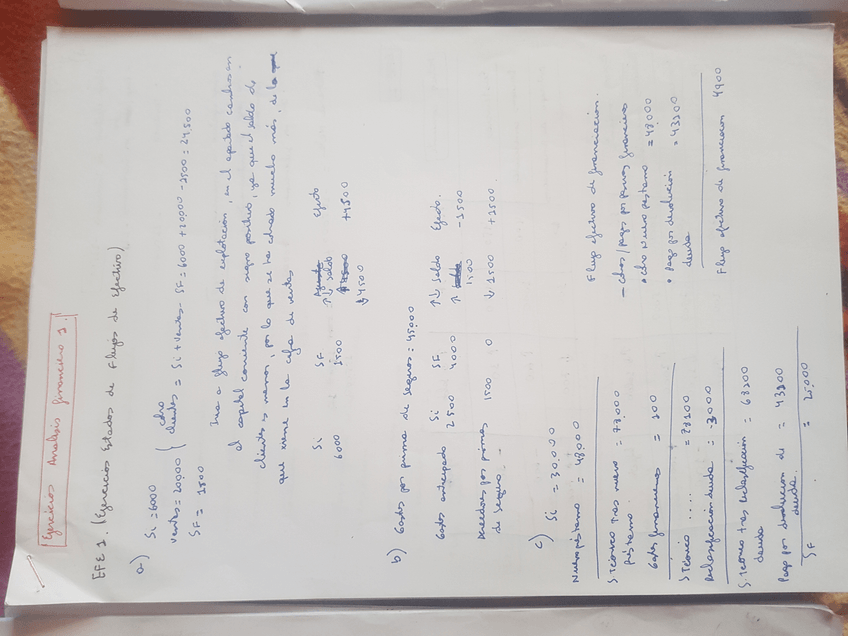 Ejercicios Analisis financiero 1.
EFE 1. (Ejercicios Estados de Flujos de Efectivo)
a) Si = 6000
ventas = 20,000
SF = 1500
cbro clientes = Si + ventas - SF = 6000 + 20000 - 1500 = 24,500
Iria a flujo efectivo de explotación, en el apartado cambios en
el capital corriente con signo positivo, ya que el saldo de
clientes es menor, por lo que se ha cobrado mucho más, de lo que
que viene en la cifra de ventas
Si SF ↑↓ saldo Efecto
6000 1500 ↓ 4500 +4500
b) Gastos por prima de seguros: 45,000
Si SF ↑↓ saldo Efecto.
Gastos anticipado 2500 4000 ↑ 1500 -1500
Acreedores por primas de seguro. 1500 0 ↓ 1500 +1500
c) Si = 30,000
Nuevo préstamo = 48,000
S Teórico tras nuevo préstamo = 78,000
Gastos financieros = 200
S Teórico ..... = 78200
Reclasificación deuda =
S. Teórico tras reclasificación deuda = 68200
Pago por devolución de deuda. = 43200
SF = 25,000
Flujo efectivo de financiación.
- cbros/pagos por pasivos financieros
• cbro Nuevo préstamo = 48,000
• Pago por devolución deuda = 43200
Flujo efectivo de financiación 4900